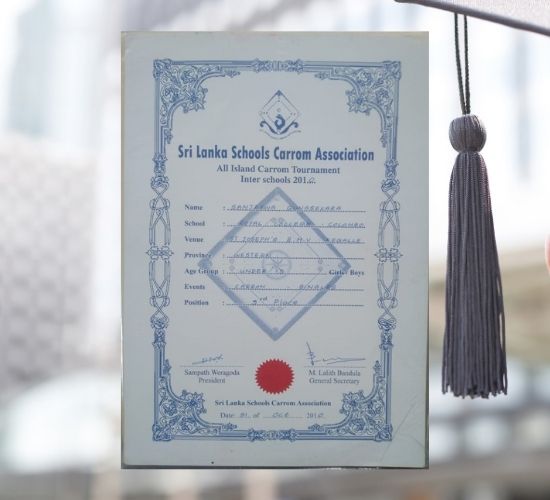 Sri Lanka Schools Carrom Association
All Island Carrom Tournament
Inter schools 2010
Name : SANJEEWA GUNASEKARA
School : ROYAL COLLEGE - COLOMBO
Venue : ST JOSEPH'S B.M.V KEGALLE
Province : WESTERN
Age Group : UNDER 15 Girls / Boys
Events : CARROM - SINGLES
Position : Place
Sampath Weragoda M. Lalith Bandula
President General Secretary
Sri Lanka Schools Carrom Association
Date: 31. of 2010